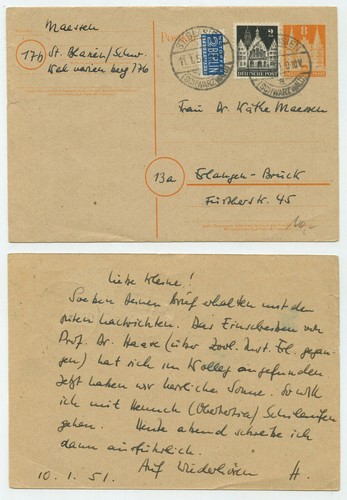 Maessen
17b
St. Blasien/Schw.
Postkarte
ST. BLASIEN
(SCHWARZWALD)
2
NOTOPFER
2 BERLIN
STEUERMARKE
DEUTSCHE POST
8
Frau Dr. Käthe Maessen
13a
Erlangen-Bruck
Fürtherstr. 45
Liebe Kleine!
Soeben Deinen Brief erhalten mit den
guten Nachrichten. Das Einschreiben von
Prof. Dr. Haase (über Zool. Inst. Erl. gegan-
gen) hat sich im Kolleg angefunden
Jetzt haben wir herrliche Sonne. So will
ich mit Heinrich Schilaufen
gehen. Heute abend schreibe ich
dann ausführlich.
Auf Wiederhören H.
10.1.51.